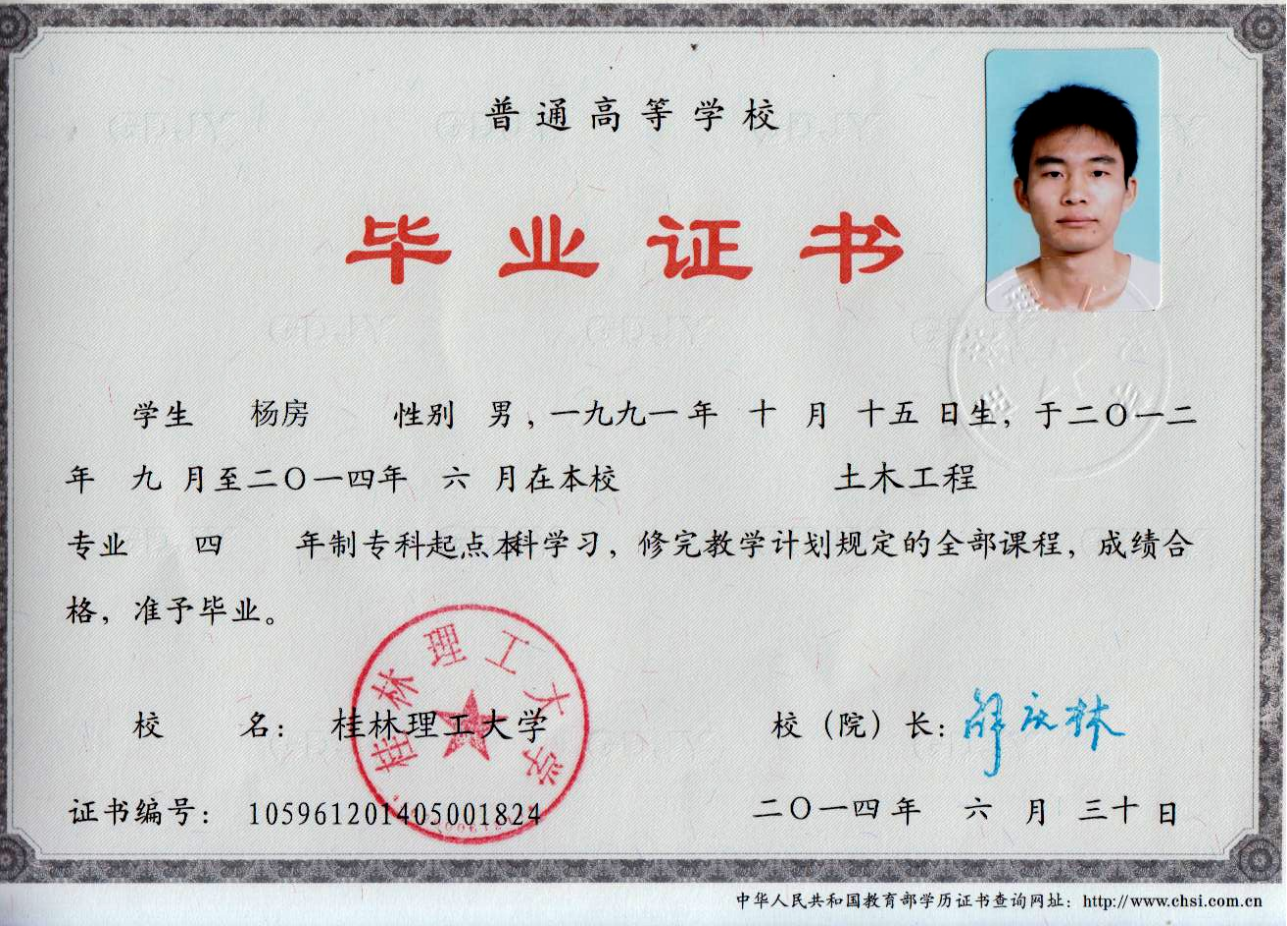 普通高等学校
毕业证书
学生 杨房 性别 男，一九九一年 十 月 十五 日生，于二〇一二
年 九 月至二〇一四年 六 月在本校 土木工程
专业 四 年制专科起点本科学习，修完教学计划规定的全部课程，成绩合
格，准予毕业。
桂林理工大学
校 名： 桂林理工大学 校（院）长：解庆林
证书编号： 105961201405001824 二〇一四年 六 月 三十 日
中华人民共和国教育部学历证书查询网址：http://www.chsi.com.cn